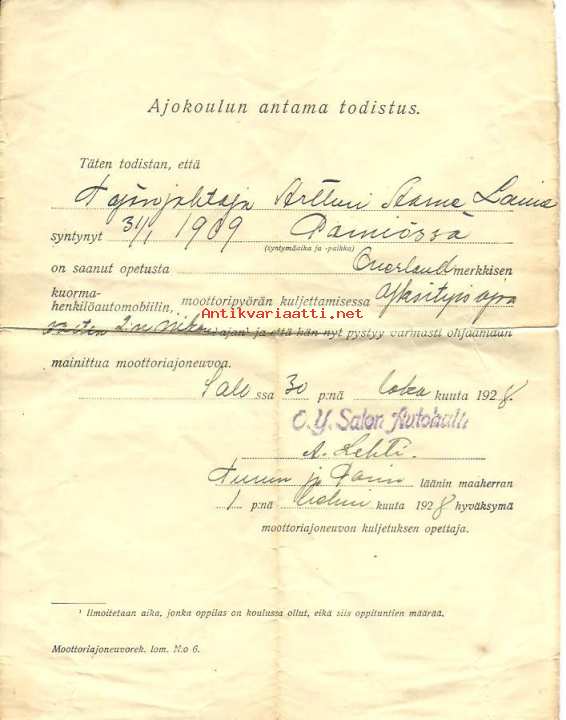 Ajokoulun antama todistus.
Täten todistan, että
Työnjohtaja Artturi Laine
syntynyt 31/1 1909 Paimiossa
(syntymäaika ja -paikka)
on saanut opetusta Overland merkkisen
kuorma-
henkilöautomobiilin, moottoripyörän kuljettamisessa
Antikvariaatti.net
2:n viikon ¹ ajan) ja että hän nyt pystyy varmasti ohjaamaan
mainittua moottoriajoneuvoa.
Salo ssa 30 p:nä loka kuuta 1928.
O.Y. Salon Autohalli
A. Lehti.
Turun ja Porin läänin maaherran
1 p:nä kuuta 1928 hyväksymä
moottoriajoneuvon kuljetuksen opettaja.
¹ Ilmoitetaan aika, jonka oppilas on koulussa ollut, eikä siis oppituntien määrää.
Moottoriajoneuvorek. lom. N:o 6.